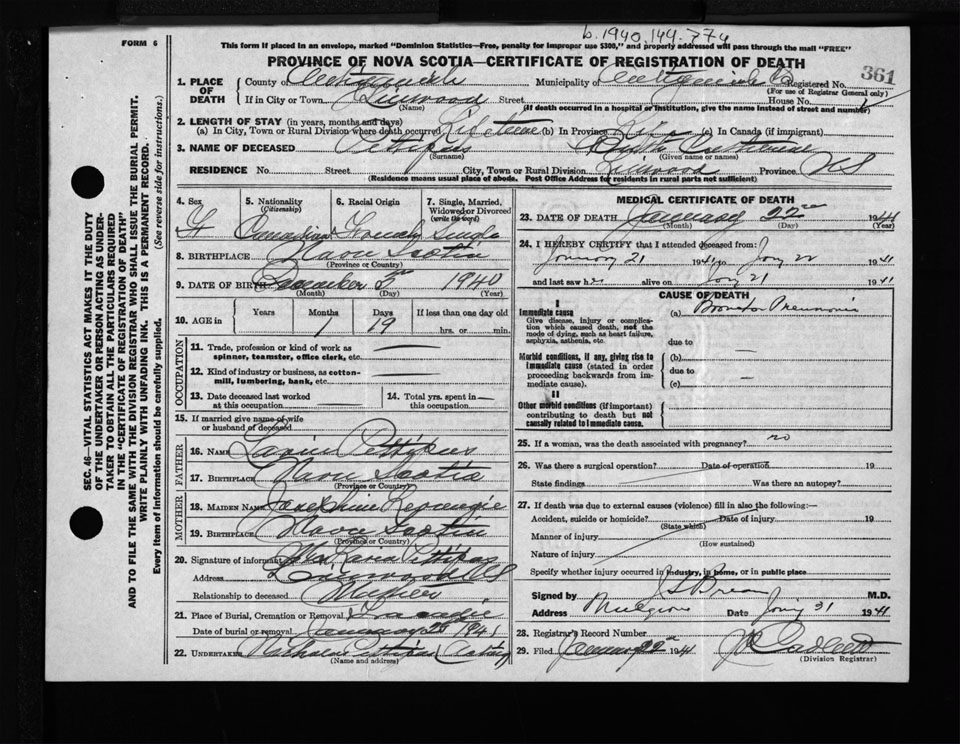 b.1940.144-774
FORM 6
This form if placed in an envelope, marked "Dominion Statistics—Free, penalty for improper use $300," and properly addressed will pass through the mail "FREE"
PROVINCE OF NOVA SCOTIA—CERTIFICATE OF REGISTRATION OF DEATH
361
SEC. 46—VITAL STATISTICS ACT MAKES IT THE DUTY
OF THE UNDERTAKER OR PERSON ACTING AS UNDER-
TAKER TO OBTAIN ALL THE PARTICULARS REQUIRED
IN THE "CERTIFICATE OF REGISTRATION OF DEATH"
AND TO FILE THE SAME WITH THE DIVISION REGISTRAR WHO SHALL ISSUE THE BURIAL PERMIT.
WRITE PLAINLY WITH UNFADING INK. THIS IS A PERMANENT RECORD.
Every item of information should be carefully supplied. (See reverse side for instructions.)
1. PLACE OF DEATH
County of Antigonish Municipality of Antigonish Co Registered No.
(For use of Registrar General only)
If in City or Town Linwood Street House No.
(Name) (If death occurred in a hospital or institution, give its name instead of street and number)
2. LENGTH OF STAY (in years, months and days)
(a) In City, Town or Rural Division where death occurred Lifetime (b) In Province (c) In Canada (if immigrant)
3. NAME OF DECEASED Pettipas Catherine
(Surname) (Given name or names)
RESIDENCE No. Street City, Town or Rural Division Linwood Province NS
(Residence means usual place of abode. Post Office Address for residents in rural parts not sufficient)
4. Sex 5. Nationality (Citizenship) 6. Racial Origin 7. Single, Married, Widowed or Divorced (write the word)
F Canadian French Single
8. BIRTHPLACE Nova Scotia
(Province or Country)
9. DATE OF BIRTH December 3 1940
(Month) (Day) (Year)
10. AGE in Years Months Days If less than one day old
1 19 hrs. or min.
OCCUPATION
11. Trade, profession or kind of work as spinner, teamster, office clerk, etc. —
12. Kind of industry or business, as cotton-mill, lumbering, bank, etc. —
13. Date deceased last worked at this occupation 14. Total yrs. spent in this occupation —
15. If married give name of wife or husband of deceased
FATHER
16. NAME Pettipas
17. BIRTHPLACE Nova Scotia
(Province or Country)
MOTHER
18. MAIDEN NAME Josephine
19. BIRTHPLACE Nova Scotia
(Province or Country)
20. Signature of informant Mrs Pettipas
Address Linwood NS
Relationship to deceased Mother
21. Place of Burial, Cremation or Removal Tracadie
Date of burial or removal January 1941
22. UNDERTAKER Nicholas Pettipas (Acting)
(Name and address)
MEDICAL CERTIFICATE OF DEATH
23. DATE OF DEATH January 22nd 1941
(Month) (Day) (Year)
24. I HEREBY CERTIFY that I attended deceased from:
January 21 1941 to Jany 22 1941
and last saw her alive on Jany 21 1941
CAUSE OF DEATH
I
Immediate cause (a) Broncho Pneumonia
Give disease, injury or complication which caused death, not the mode of dying, such as heart failure, asphyxia, asthenia, etc.
due to
Morbid conditions, if any, giving rise to immediate cause (stated in order proceeding backwards from immediate cause). (b) —
due to
(c) —
II
Other morbid conditions (if important) contributing to death but not causally related to immediate cause.
25. If a woman, was the death associated with pregnancy? no
26. Was there a surgical operation? Date of operation 19
State findings Was there an autopsy?
27. If death was due to external causes (violence) fill in also the following:—
Accident, suicide or homicide? Date of injury 19
(State which)
Manner of injury
(How sustained)
Nature of injury
Specify whether injury occurred in industry, in home, or in public place
Signed by M.D.
Address Mulgrave Date Jany 31 1941
28. Registrar's Record Number
29. Filed January 22nd 1941
(Division Registrar)